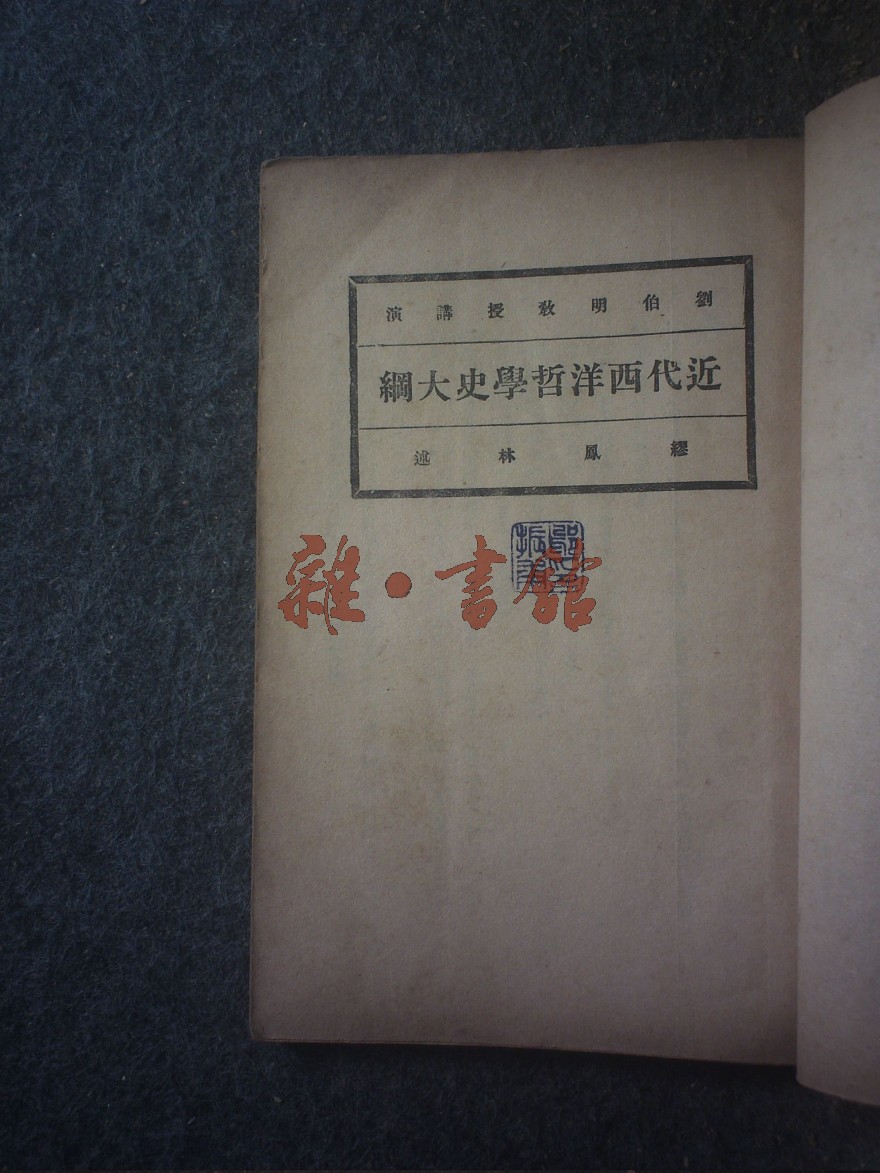 劉伯明教授講演
近代西洋哲學史大綱
繆鳳林述
雜·書館